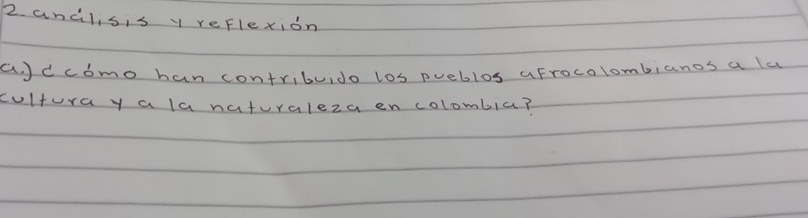 2. análisis y reflexión
a.) ¿cómo han contribuido los pueblos afrocolombianos a la
cultura y a la naturaleza en colombia?